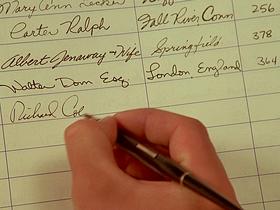 Mary Ann Lecker 256
Carter Ralph Fall River Conn
Albert Janaway & Wife Springfield 378
Walter Dorn Esq. London England 364
Richard Col